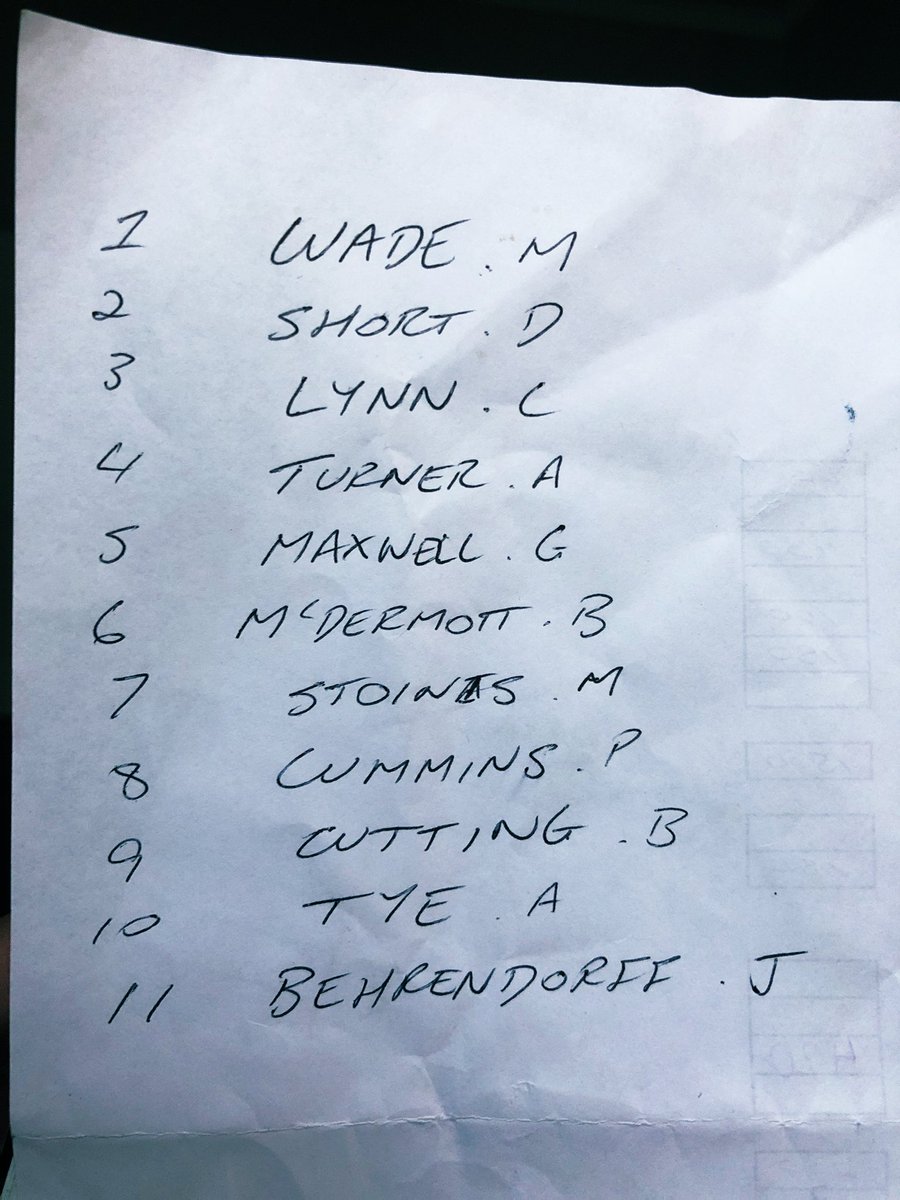 1 WADE . M
2 SHORT . D
3 LYNN . C
4 TURNER . A
5 MAXWELL . G
6 McDERMOTT . B
7 STOINIS . M
8 CUMMINS . P
9 CUTTING . B
10 TYE . A
11 BEHRENDORFF . J